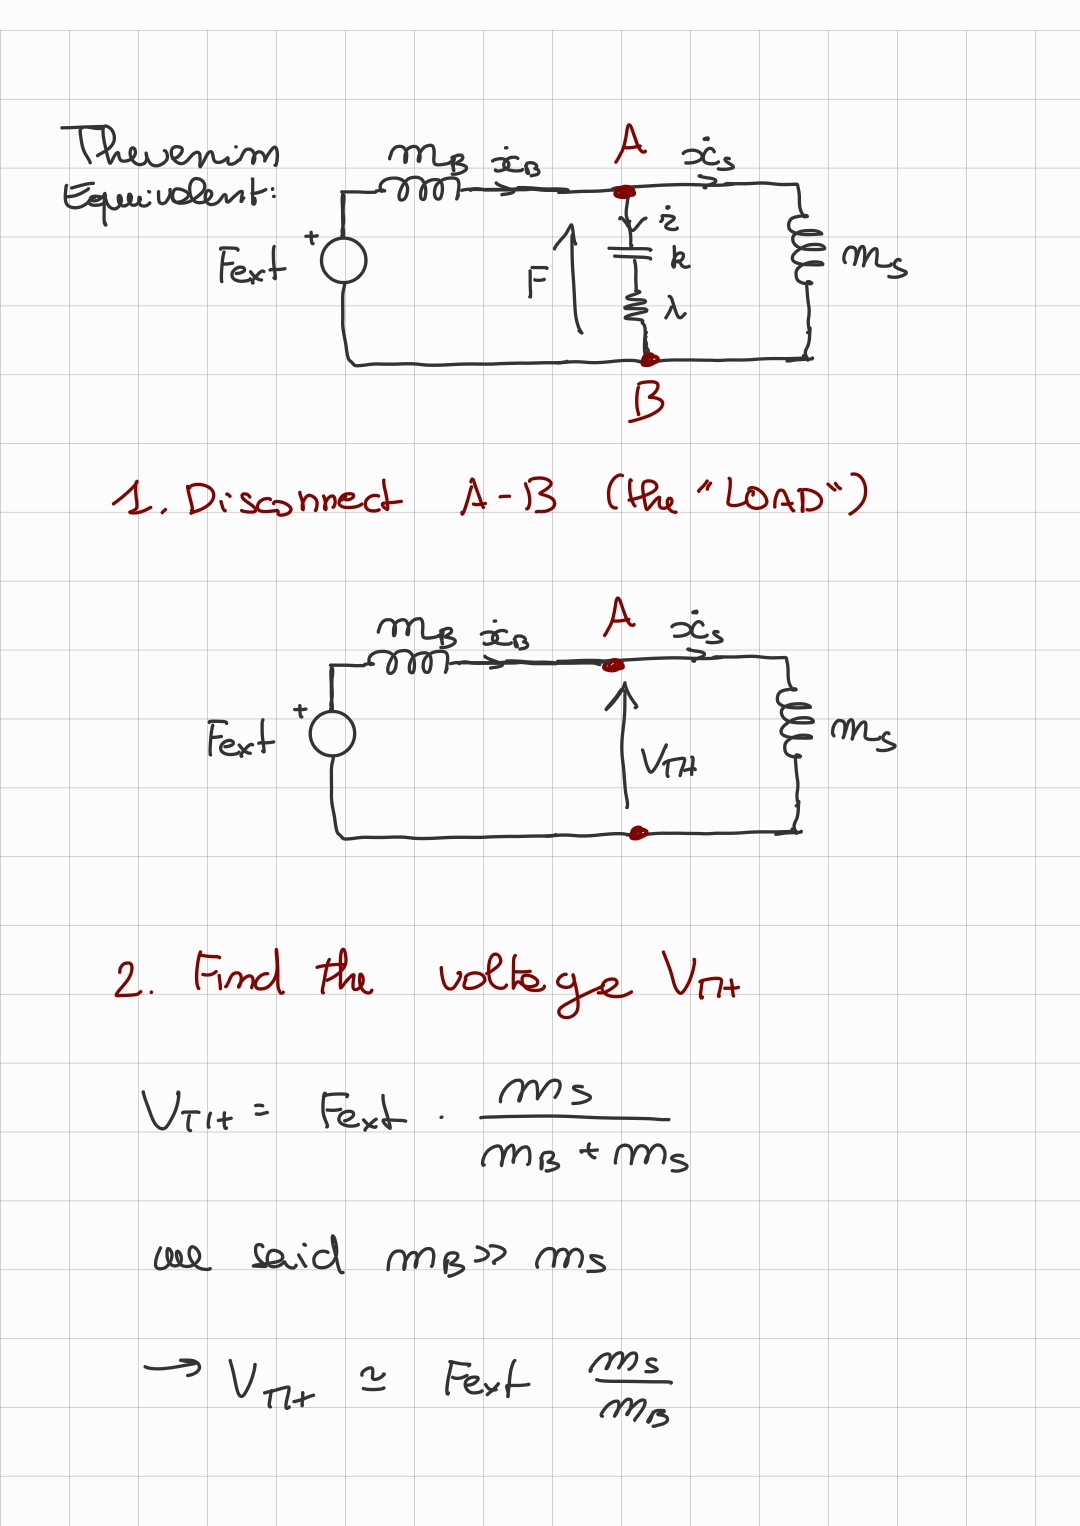 Thevenin
Equivalent:
mB ẋB A ẋs
+ Fext F ż k λ ms
B
1. Disconnect A-B (the "LOAD")
mB ẋB A ẋs
+ Fext VTH ms
2. Find the voltage VTH
VTH = Fext · ms / mB + ms
we said mB >> ms
→ VTH ≃ Fext ms / mB